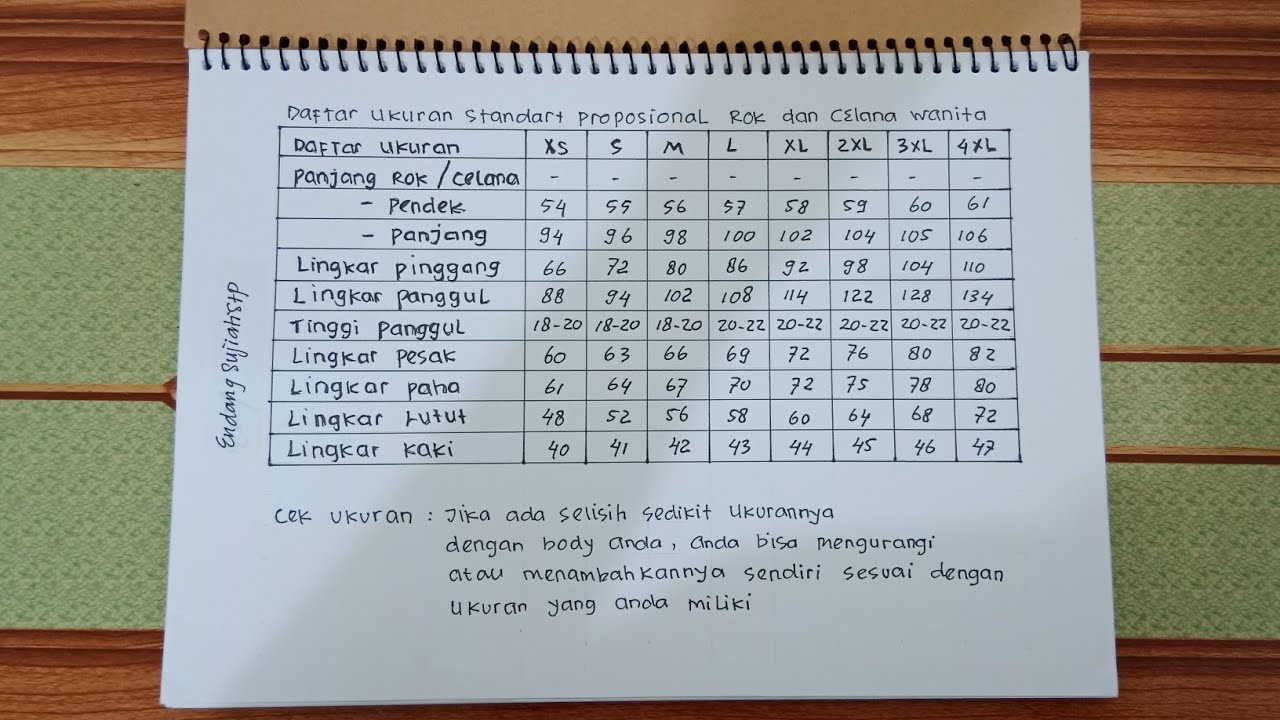 Daftar Ukuran Standart Proposional Rok dan Celana Wanita
Daftar Ukuran XS S M L XL 2XL 3XL 4XL
Panjang Rok / Celana - - - - - - - -
- Pendek 54 55 56 57 58 59 60 61
- Panjang 94 96 98 100 102 104 105 106
Lingkar pinggang 66 72 80 86 92 98 104 110
Lingkar panggul 88 94 102 108 114 122 128 134
Tinggi panggul 18-20 18-20 18-20 20-22 20-22 20-22 20-22 20-22
Lingkar pesak 60 63 66 69 72 76 80 82
Lingkar paha 61 64 67 70 72 75 78 80
Lingkar Lutut 48 52 56 58 60 64 68 72
Lingkar kaki 40 41 42 43 44 45 46 47
Endang Sujiah Stp
Cek Ukuran : Jika ada selisih sedikit ukurannya
dengan body anda, anda bisa mengurangi
atau menambahkannya sendiri sesuai dengan
ukuran yang anda miliki